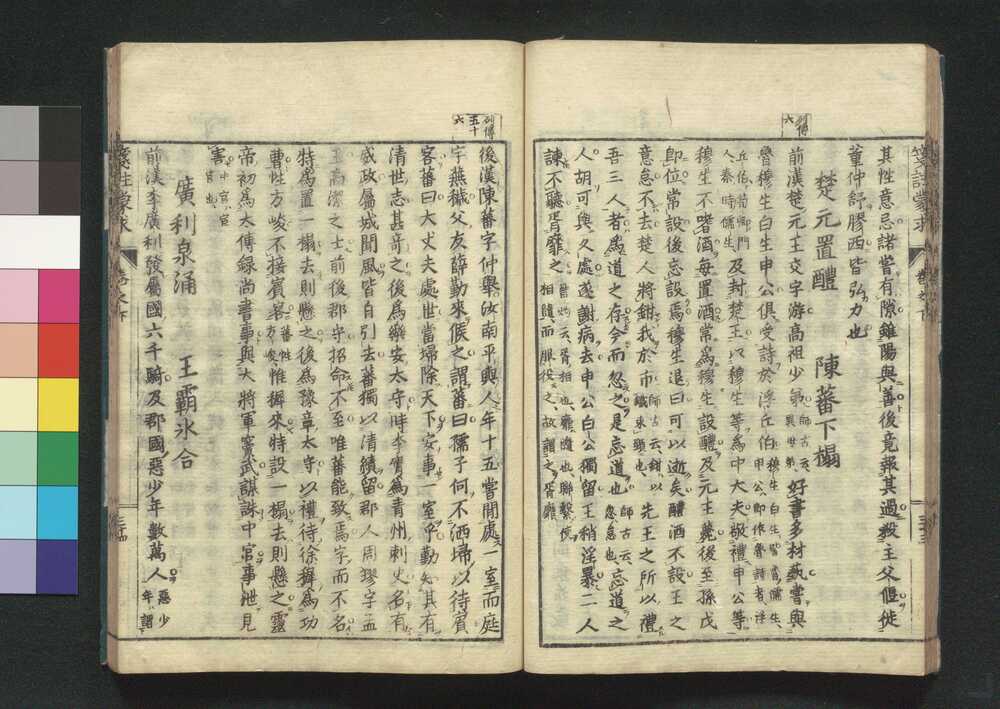 其性意忌諸嘗有隙雖陽與善後竟報其過殺主父偃徙
董仲舒膠西皆弘力也
楚元置醴 陳蕃下榻
列傳六
前漢楚元王交字游高祖少弟好書多材藝嘗與
魯穆生白生申公俱受詩於浮丘伯
及封楚王以穆生等為中大夫敬禮申公等
穆生不嗜酒每置酒常為穆生設醴及元王薨後至孫戊
即位常設後忘設焉穆生退曰可以逝矣醴酒不設王之
意怠不去楚人將鉗我於市先王之所以禮
吾三人者為道之存今而忽之是忘道也忘道之
人胡可與久處遂謝病去申公白公獨留王稍淫暴二人
諫不聽胥靡之
相隨而服役之故謂之胥靡
列傳五十六
後漢陳蕃字仲舉汝南平輿人年十五嘗閒處一室而庭
宇蕪穢父友薛勤來候之謂蕃曰孺子何不洒埽以待賓
客蕃曰大丈夫處世當埽除天下安事一室乎勤知其有
清世志甚奇之後為樂安太守時李膺為青州刺史名有
威政屬城聞風皆自引去蕃獨以清績留郡人周璆字孟
玉高潔之士前後郡守招命不至唯蕃能致焉字而不名
特為置一榻去則懸之後為豫章太守以禮待徐穉為功
曹性方峻不接賓客惟穉來特設一榻去則懸之靈
帝初為太傅録尚書事與大將軍竇武謀誅中官事泄見
害
廣利泉涌 王霸氷合
前漢李廣利發屬國六千騎及郡國惡少年數萬人